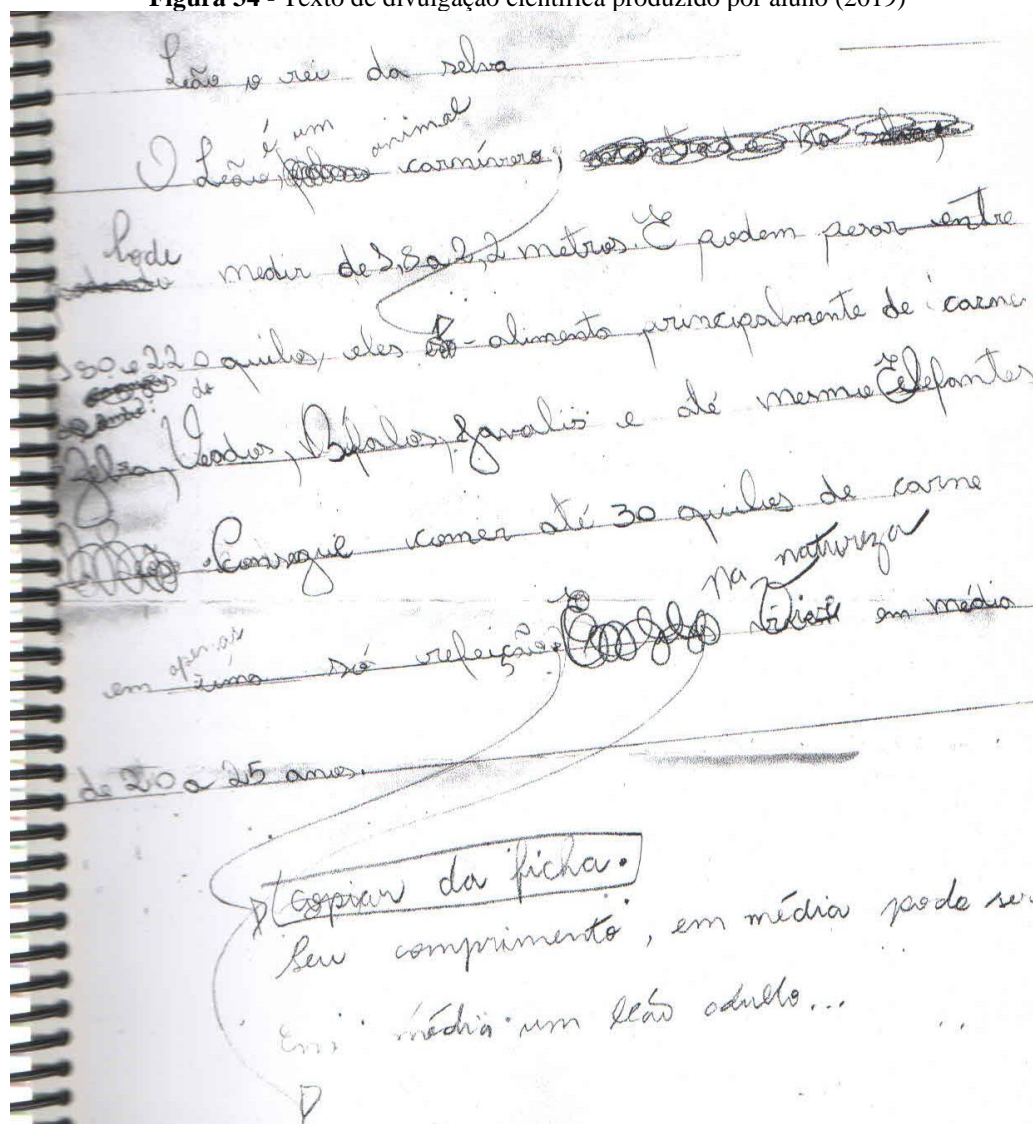 Figura 34 - Texto de divulgação científica produzido por aluno (2019)
Leão o rei da selva
é um animal
O Leão, carnívoro,
Pode medir de 1,8 a 2,2 metros. E podem pesar entre
180 e 220 quilos, eles alimenta principalmente de carne
de
Zebra, Veados, Búfalos, Javalis e até mesmo Elefantes
Consegue comer até 30 quilos de carne
na natureza
apenas
em uma só refeição. Vive em média
de 20 a 25 anos.
Copiar da ficha.
Seu comprimento, em média pode ser
Em média um leão adulto...